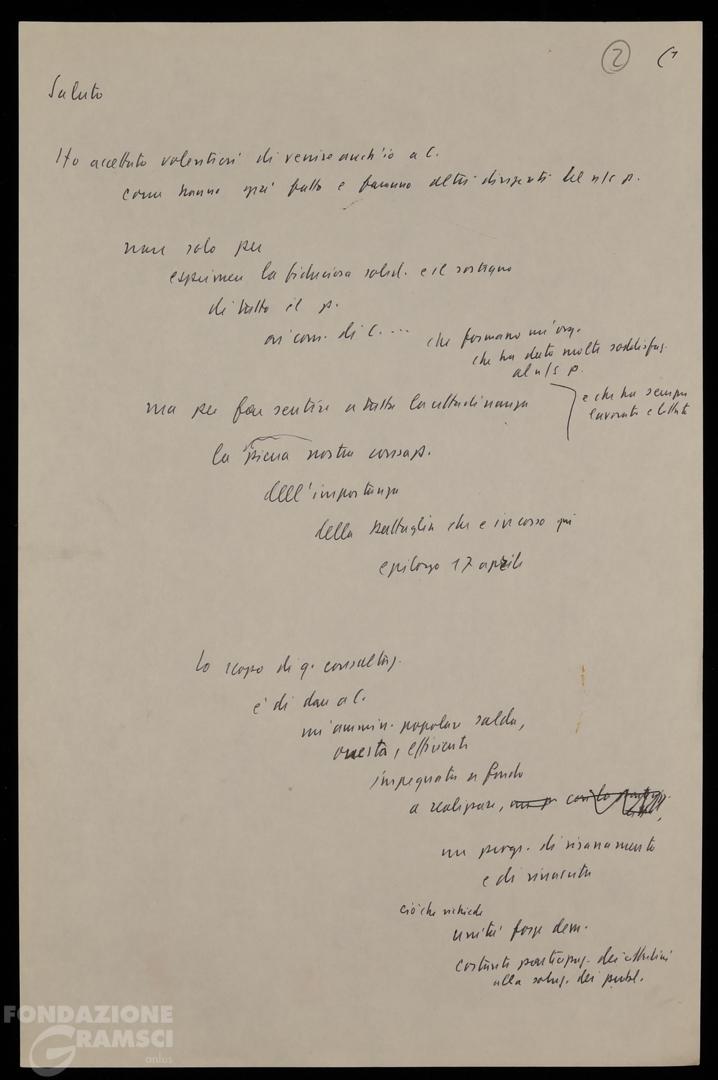 2
Saluto
Ho accettato volentieri di venire anch'io a C.
come hanno già fatto e faranno altri dirigenti del n/s p.
non solo per
esprimere la fiduciosa solid. e il sostegno
di tutto il p.
ai com. di C. ...
che formano un'org.
che ha dato molte soddisfaz.
al n/s p.
e che ha sempre
lavorato e lottato
ma per far sentire a tutta la cittadinanza
la piena nostra consap.
dell'importanza
della battaglia che è in corso qui
epilogo 17 aprile
Lo scopo di q. consultaz.
è di dare a C.
un'ammin. popolare salda,
onesta, efficiente
impegnata a fondo
a realizzare,
un progr. di risanamento
e di rinascita
ciò che richiede
unità forze dem.
costante partecipaz. dei cittadini
alla soluz. dei probl.
FONDAZIONE
GRAMSCI
onlus